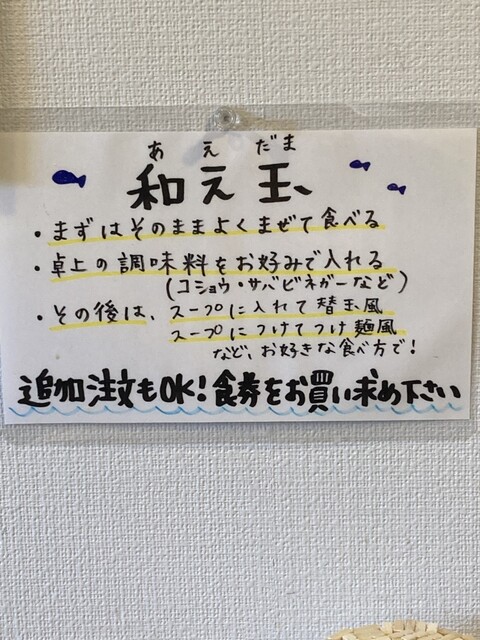 あえだま
和え玉
・まずはそのままよくまぜて食べる
・卓上の調味料をお好みで入れる
(コショウ・サバビネガーなど)
・その後は、スープに入れて替玉風
スープにつけてつけ麺風
など、お好きな食べ方で!
追加注文もOK!食券をお買い求め下さい